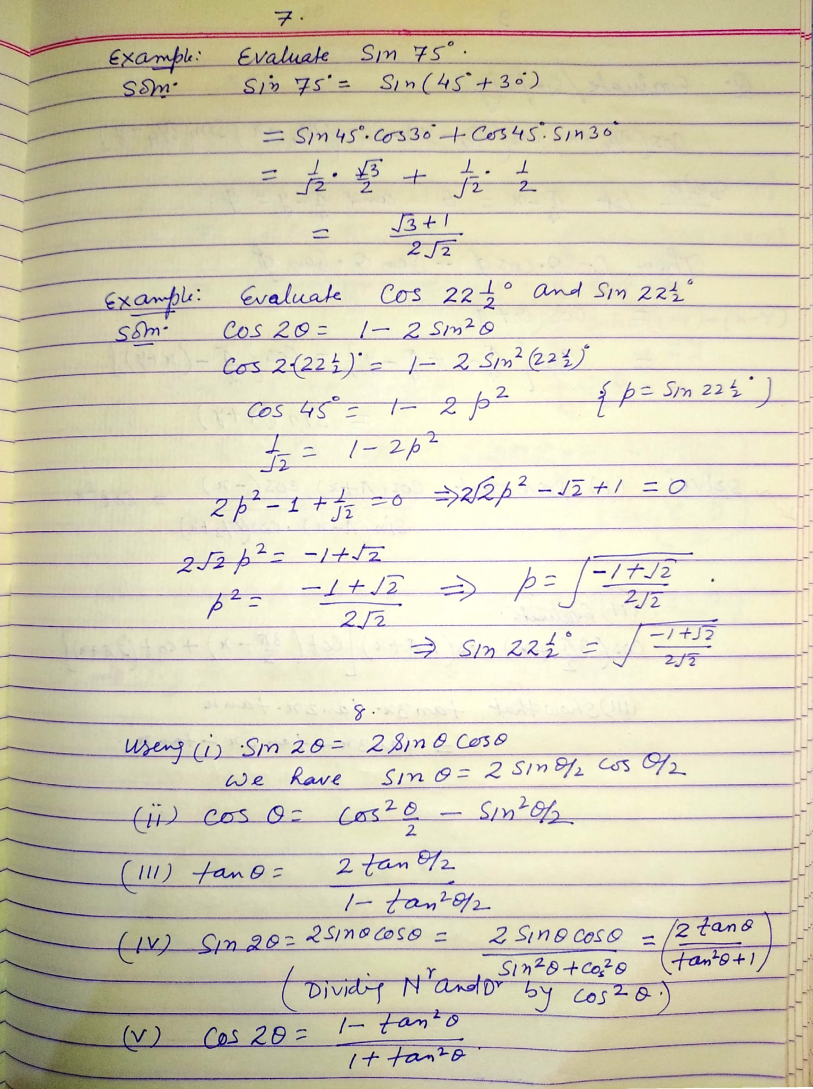 7.
Example: Evaluate Sin 75°.
Soln. Sin 75° = Sin(45°+30°)
= Sin45°.cos30° + Cos45°.Sin30°
= 1/√2 . √3/2 + 1/√2 . 1/2
= (√3+1)/(2√2)
Example: Evaluate Cos 22 1/2° and Sin 22 1/2°
Soln. Cos 2θ = 1 - 2 Sin²θ
Cos 2.(22 1/2)° = 1 - 2 Sin²(22 1/2)°
Cos 45° = 1 - 2 p² { p = Sin 22 1/2° )
1/√2 = 1 - 2p²
2p² - 1 + 1/√2 = 0 ⇒ 2√2p² - √2 + 1 = 0
2√2 p² = -1+√2
p² = (-1+√2)/(2√2) ⇒ p = √((-1+√2)/(2√2)) .
⇒ Sin 22 1/2° = √((-1+√2)/(2√2))
8.
Useng (i) Sin 2θ = 2 Sinθ Cosθ
We have Sin θ = 2 Sin θ/2 Cos θ/2
(ii) Cos θ = Cos² θ/2 - Sin² θ/2
(III) tanθ = (2 tan θ/2)/(1 - tan² θ/2)
(IV) Sin 2θ = 2Sinθ Cosθ = (2 Sinθ Cosθ)/(Sin²θ + Cos²θ) = (2 tanθ/(tan²θ+1))
( Dividig Nʳ and Dʳ by Cos²θ.)
(V) Cos 2θ = (1 - tan²θ)/(1 + tan²θ).